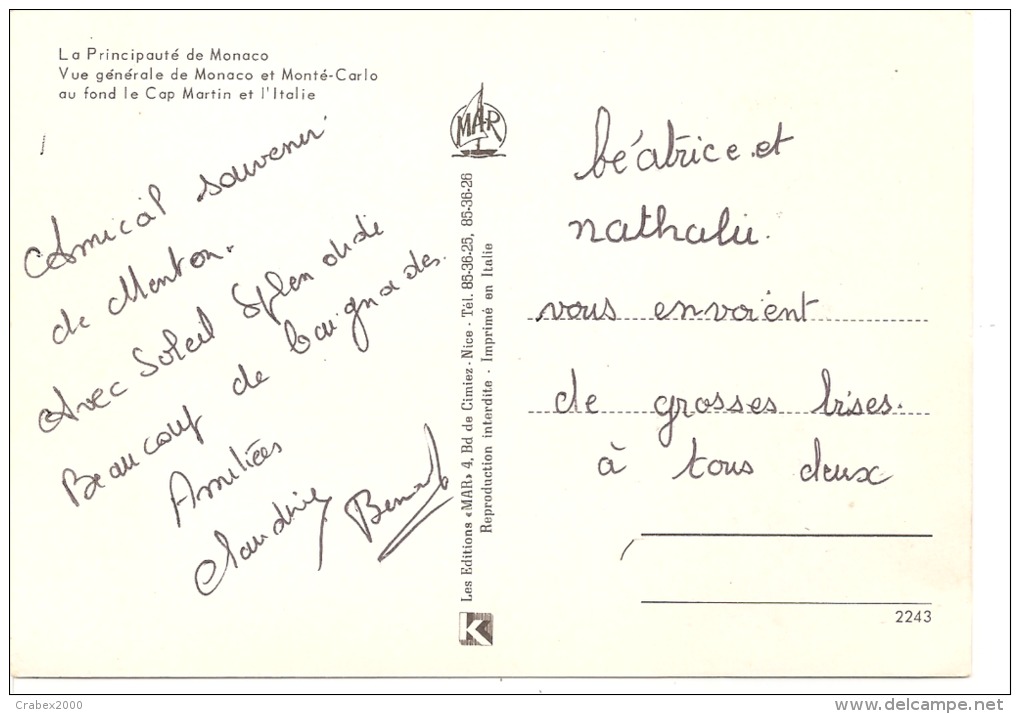 La Principauté de Monaco
Vue générale de Monaco et Monté-Carlo
au fond le Cap Martin et l'Italie
Amical souvenir
de Menton.
Avec Soleil Splendide
Beaucoup de baignades.
Amitiées
Claudine Bernard
MAR
Les Editions «MAR» 4, Bd de Cimiez - Nice - Tél. 85-36-25, 85-36-26
Reproduction interdite - Imprimé en Italie
K
béatrice et
nathalie.
vous envoient
de grosses bises.
à tous deux
2243
Crabex2000
www.delcampe.net